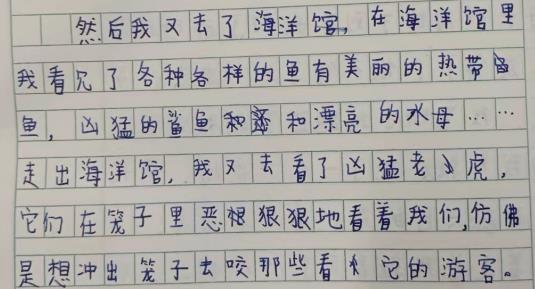 然后我又去了海洋馆，在海洋馆里
我看见了各种各样的鱼有美丽的热带
鱼，凶猛的鲨鱼和漂亮的水母……
走出海洋馆，我又去看了凶猛老虎，
它们在笼子里恶狠狠地看着我们,仿佛
是想冲出笼子去咬那些看它的游客。